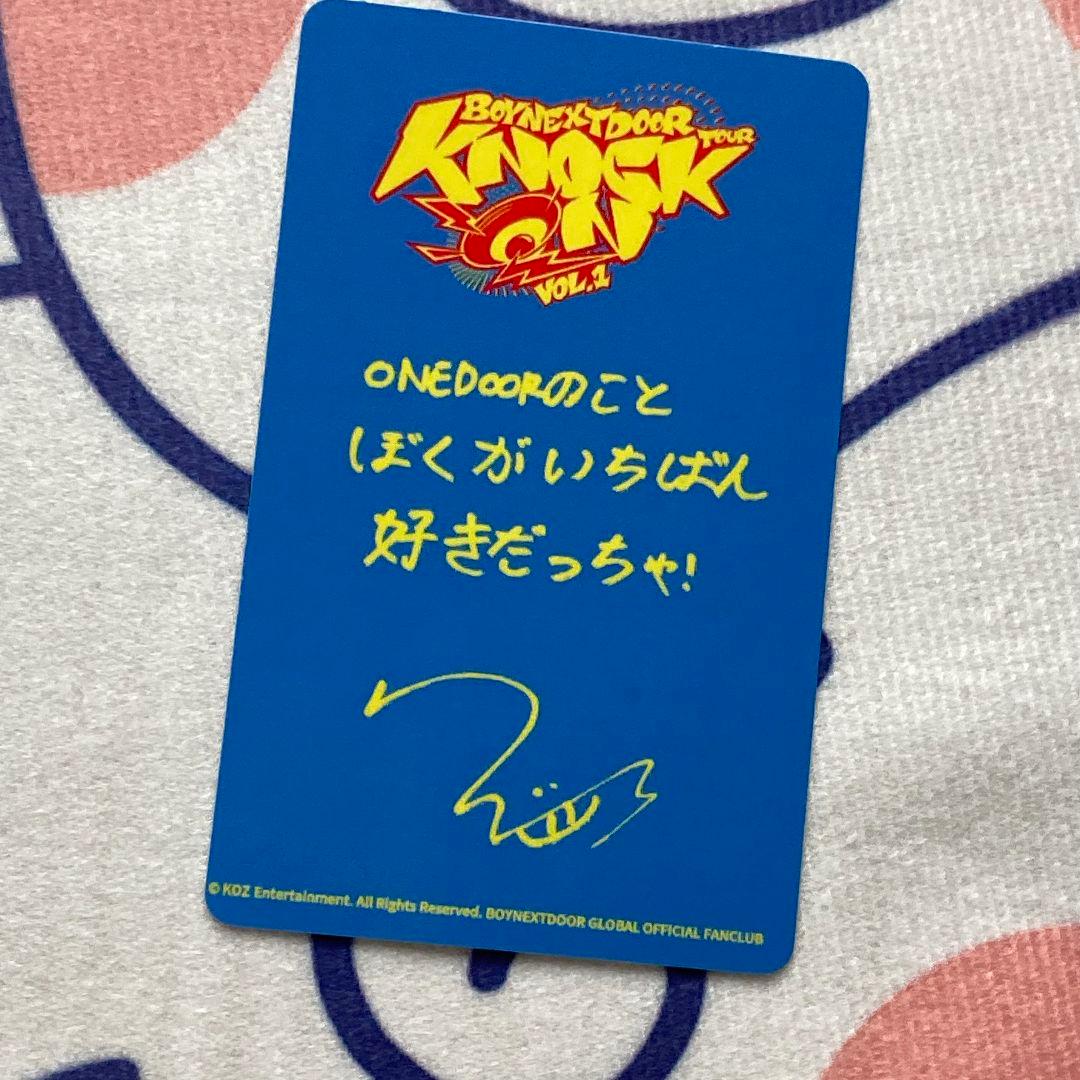 BOYNEXTDOOR
TOUR
KNOCK
ON
VOL.1
ONEDOORのこと
ぼくがいちばん
好きだっちゃ!
© KOZ Entertainment. All Rights Reserved. BOYNEXTDOOR GLOBAL OFFICIAL FANCLUB